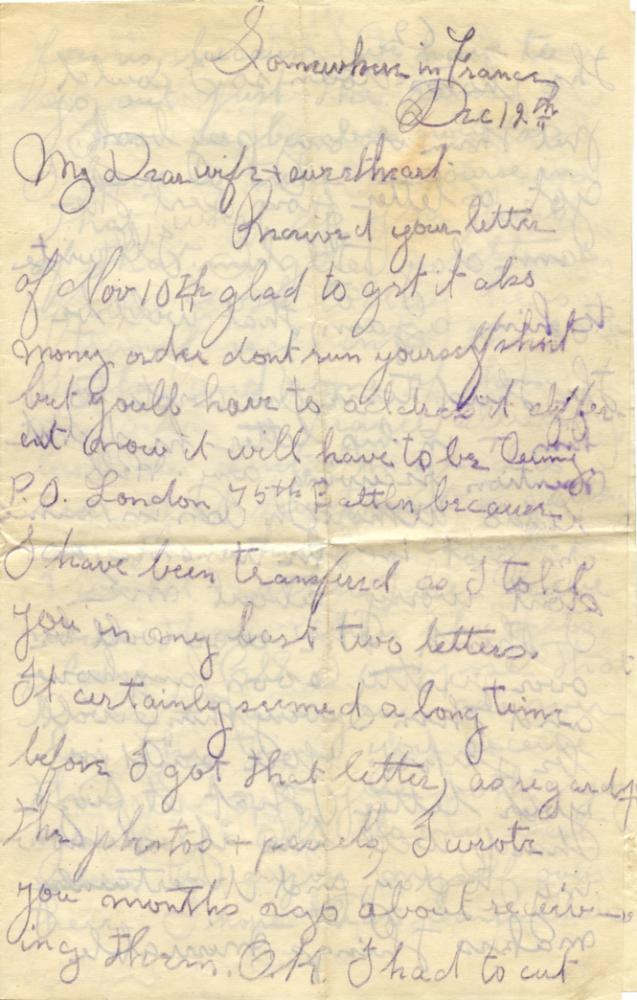 Somewhere in France
Dec 12th
My Dear wife + sweetheart.
Received your letter
of Nov 10th glad to get it also
money order dont run yourself short
but youll have to address it differ-
ent now it will have to be Army
P.O. London 75th Battln because
I have been transfered as I told
you in my last two letters.
It certainly seemed a long time
before I got that letter, as regards
the photos + parcels, I wrote
you months ago about receiv-
ing them. O.K. I had to cut